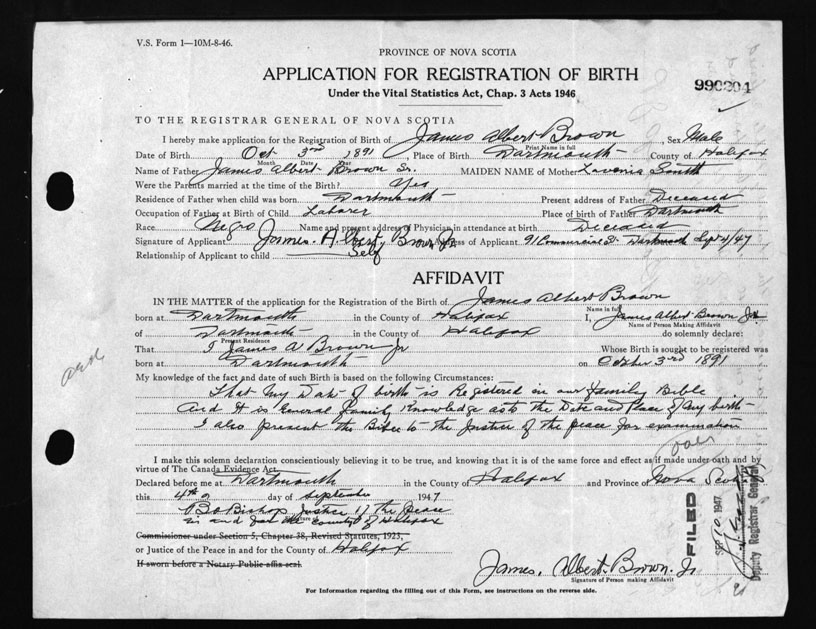 V.S. Form 1—10M-8-46.
PROVINCE OF NOVA SCOTIA
APPLICATION FOR REGISTRATION OF BIRTH
Under the Vital Statistics Act, Chap. 3 Acts 1946
990204
TO THE REGISTRAR GENERAL OF NOVA SCOTIA
I hereby make application for the Registration of Birth of James Albert Brown, Sex Male
Print Name in full
Date of Birth Oct 3rd 1891, Place of Birth Dartmouth County of Halifax
Month Date Year
Name of Father James Albert Brown Sr. MAIDEN NAME of Mother Lavenia Smith
Were the Parents married at the time of the Birth? Yes
Residence of Father when child was born Dartmouth Present address of Father Deceased
Occupation of Father at Birth of Child Laborer Place of birth of Father Dartmouth
Race Negro Name and present address of Physician in attendance at birth Deceased
Signature of Applicant James. Albert Brown Jr Address of Applicant 91 Commercial St. Dartmouth Sept 4/47
Relationship of Applicant to child Self
AFFIDAVIT
IN THE MATTER of the application for the Registration of the Birth of James Albert Brown
Name in full
born at Dartmouth in the County of Halifax I, James Albert Brown Jr
Name of Person Making Affidavit
of Dartmouth in the County of Halifax do solemnly declare:
Present Residence
That I James A Brown Jr Whose Birth is sought to be registered was
born at Dartmouth on October 3rd 1891
My knowledge of the fact and date of such Birth is based on the following Circumstances:
That My Date of birth is Registered in our family Bible
And It is General family Knowledge as to the Date and Place of my birth
I also present the Bible to the Justice of the peace for examination
I make this solemn declaration conscientiously believing it to be true, and knowing that it is of the same force and effect as if made under oath and by
virtue of The Canada Evidence Act.
Declared before me at Dartmouth in the County of Halifax and Province of Nova Scotia
this 4th day of September 1947
B O Bishop Justice of the Peace
in and for the County of Halifax
Commissioner under Section 5, Chapter 38, Revised Statutes, 1923,
or Justice of the Peace in and for the County of Halifax
If sworn before a Notary Public affix seal.
James. Albert Brown. Jr
Signature of Person making Affidavit
For Information regarding the filling out of this Form, see instructions on the reverse side.
FILED
SEP 10 1947
Deputy Registrar General